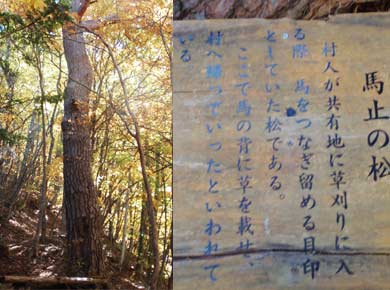 馬止の松
村人が共有地に草刈りに入
る際、馬をつなぎ留める目印
としていた松である。
ここで馬の背に草を載せ、
村へ帰っていったといわれて
いる